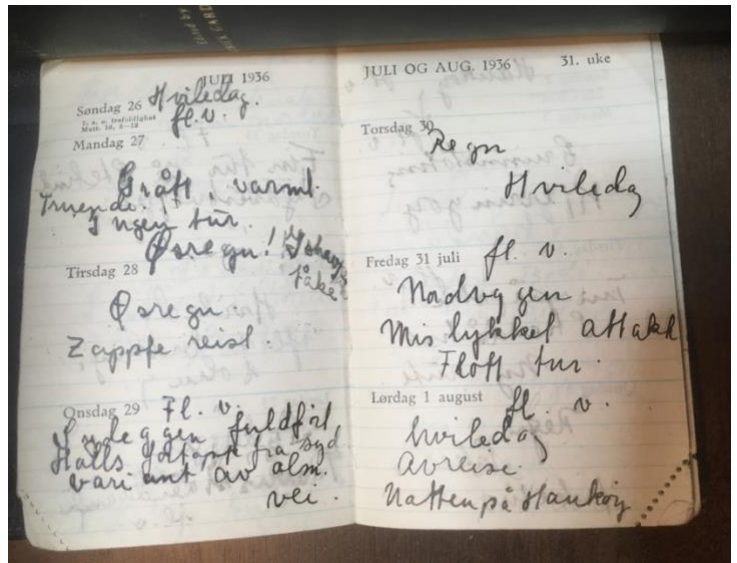 Edited by
JULI 1936
Søndag 26 Hviledag.
fl. v.
Matt. 16, 5-12
Mandag 27
Grått varmt.
Truende.
Ingen tur.
Øsregn!
tåke
Tirsdag 28
Øsregn.
Zappfe reist.
Onsdag 29 Fl. v.
fuldført
Halls fra syd
variant av alm.
vei.
JULI OG AUG. 1936 31. uke
Torsdag 30
Regn
Hviledag
Fredag 31 juli fl. v.
Nordveggen
Mislykket attakk
Flott tur.
Lørdag 1 august fl. v.
hviledag
avreise.
Natten på Hankøy